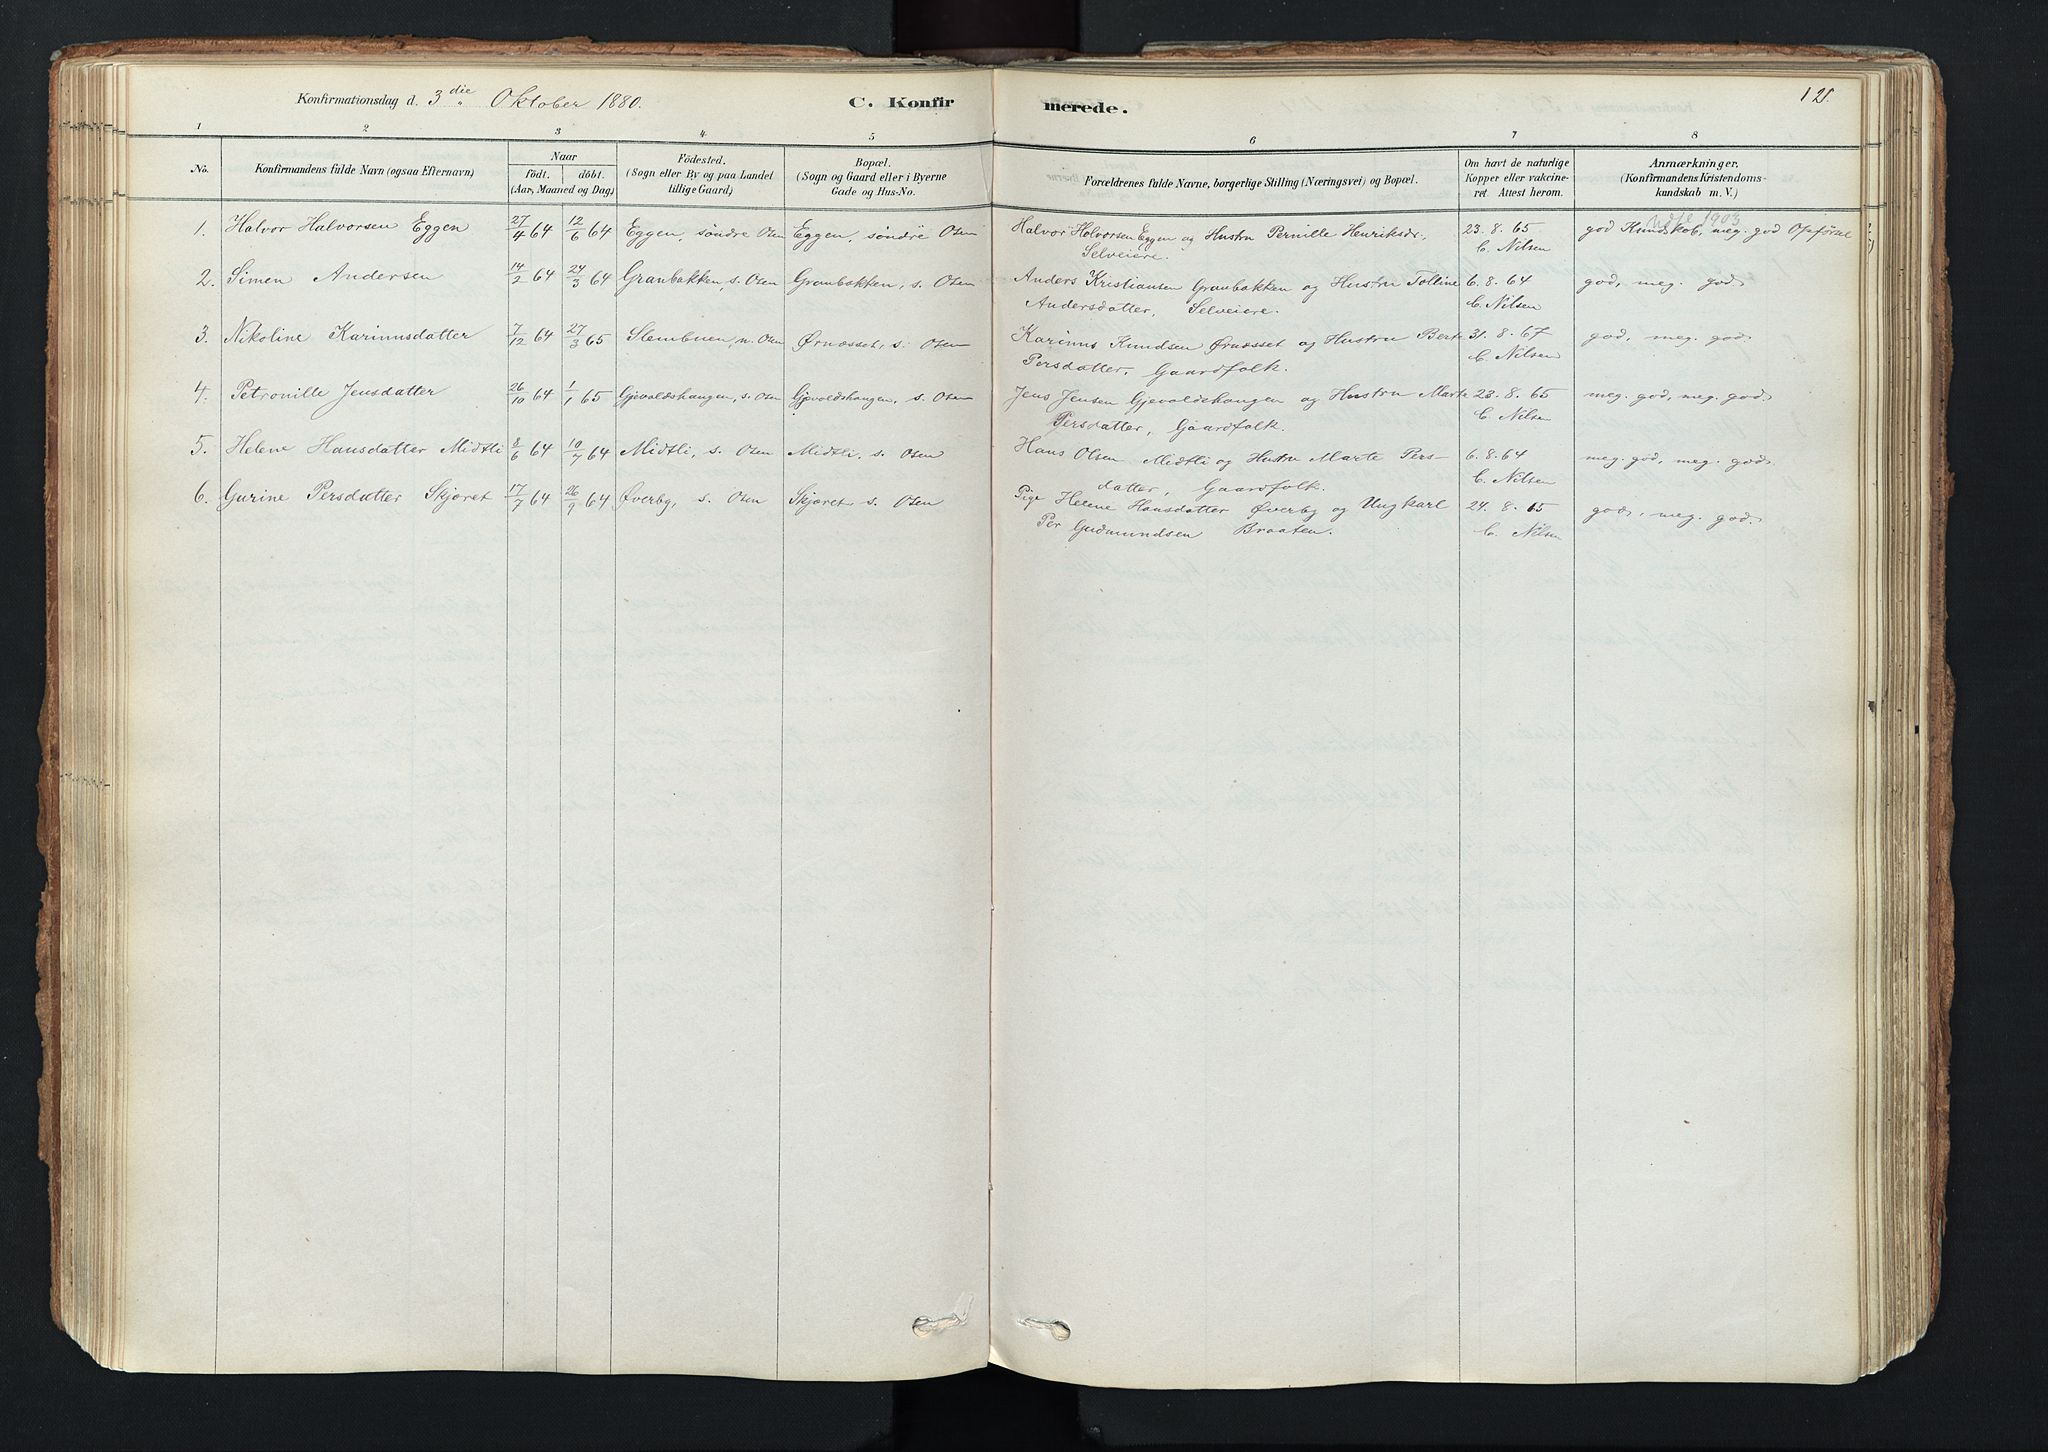 Konfirmationsdag d. 3die Oktober 1880.
C. Konfirmerede.
121.
1 2 3 4 5 6 7 8
No.
Konfirmandens fulde Navn (ogsaa Efternavn)
Naar
födt. döbt.
(Aar, Maaned og Dag.)
Födested.
(Sogn eller By og paa Landet
tillige Gaard.)
Bopæl.
(Sogn og Gaard eller i Byerne
Gade og Hus-No.
Forældrenes fulde Navne, borgerlige Stilling (Næringsvei) og Bopæl.
Om havt de naturlige
Kopper eller vakcine-
ret. Attest herom.
Anmærkninger.
(Konfirmandens Kristendoms-
kundskab m. V.)
1. Halvor Halvorsen Eggen 27/4 64 12/6 64 Eggen, søndre Osen Eggen, søndre Osen Halvor Halvorsen Eggen og Hustru Pernille Henriksdr., 23.8.65 god Kundskab, meg. god Opførsel
Selveiere. C. Nilsen
1903
2. Simen Andersen 14/2 64 24/3 64 Granbakken, s. Osen Granbakken, s. Osen Anders Kristiansen Granbakken og Hustru Tolline 6.8.64 god, meg. god
Andersdatter, Selveiere. C. Nilsen
3. Nikoline Karinusdatter 7/12 64 27/3 65 Stenbuen, n. Osen Ørnæsset, s. Osen Karinus Knudsen Ørnæsset og Hustru Berte 31.8.67 god, meg. god
Persdatter, Gaardfolk. C. Nilsen
4. Petronille Jensdatter 26/10 64 1/1 65 Gjevaldshaugen, s. Osen Gjevaldshaugen, s. Osen Jens Jensen Gjevaldshaugen og Hustru Marte 23.8.65 meg. god, meg. god
Persdatter, Gaardfolk. C. Nilsen
5. Helene Hansdatter Midtli 8/6 64 10/7 64 Midtli, s. Osen Midtli, s. Osen Hans Olsen Midtli og Hustru Marte Pers- 6.8.64 meg. god, meg. god
datter, Gaardfolk. C. Nilsen
6. Gurine Persdatter Skjæret 17/7 64 26/9 64 Øverby, s. Osen Skjæret s. Osen Pige Helene Hansdatter Øverby og Ungkarl 24.8.65 god, meg. god.
Per Gudmundsen Braaten. C. Nilsen